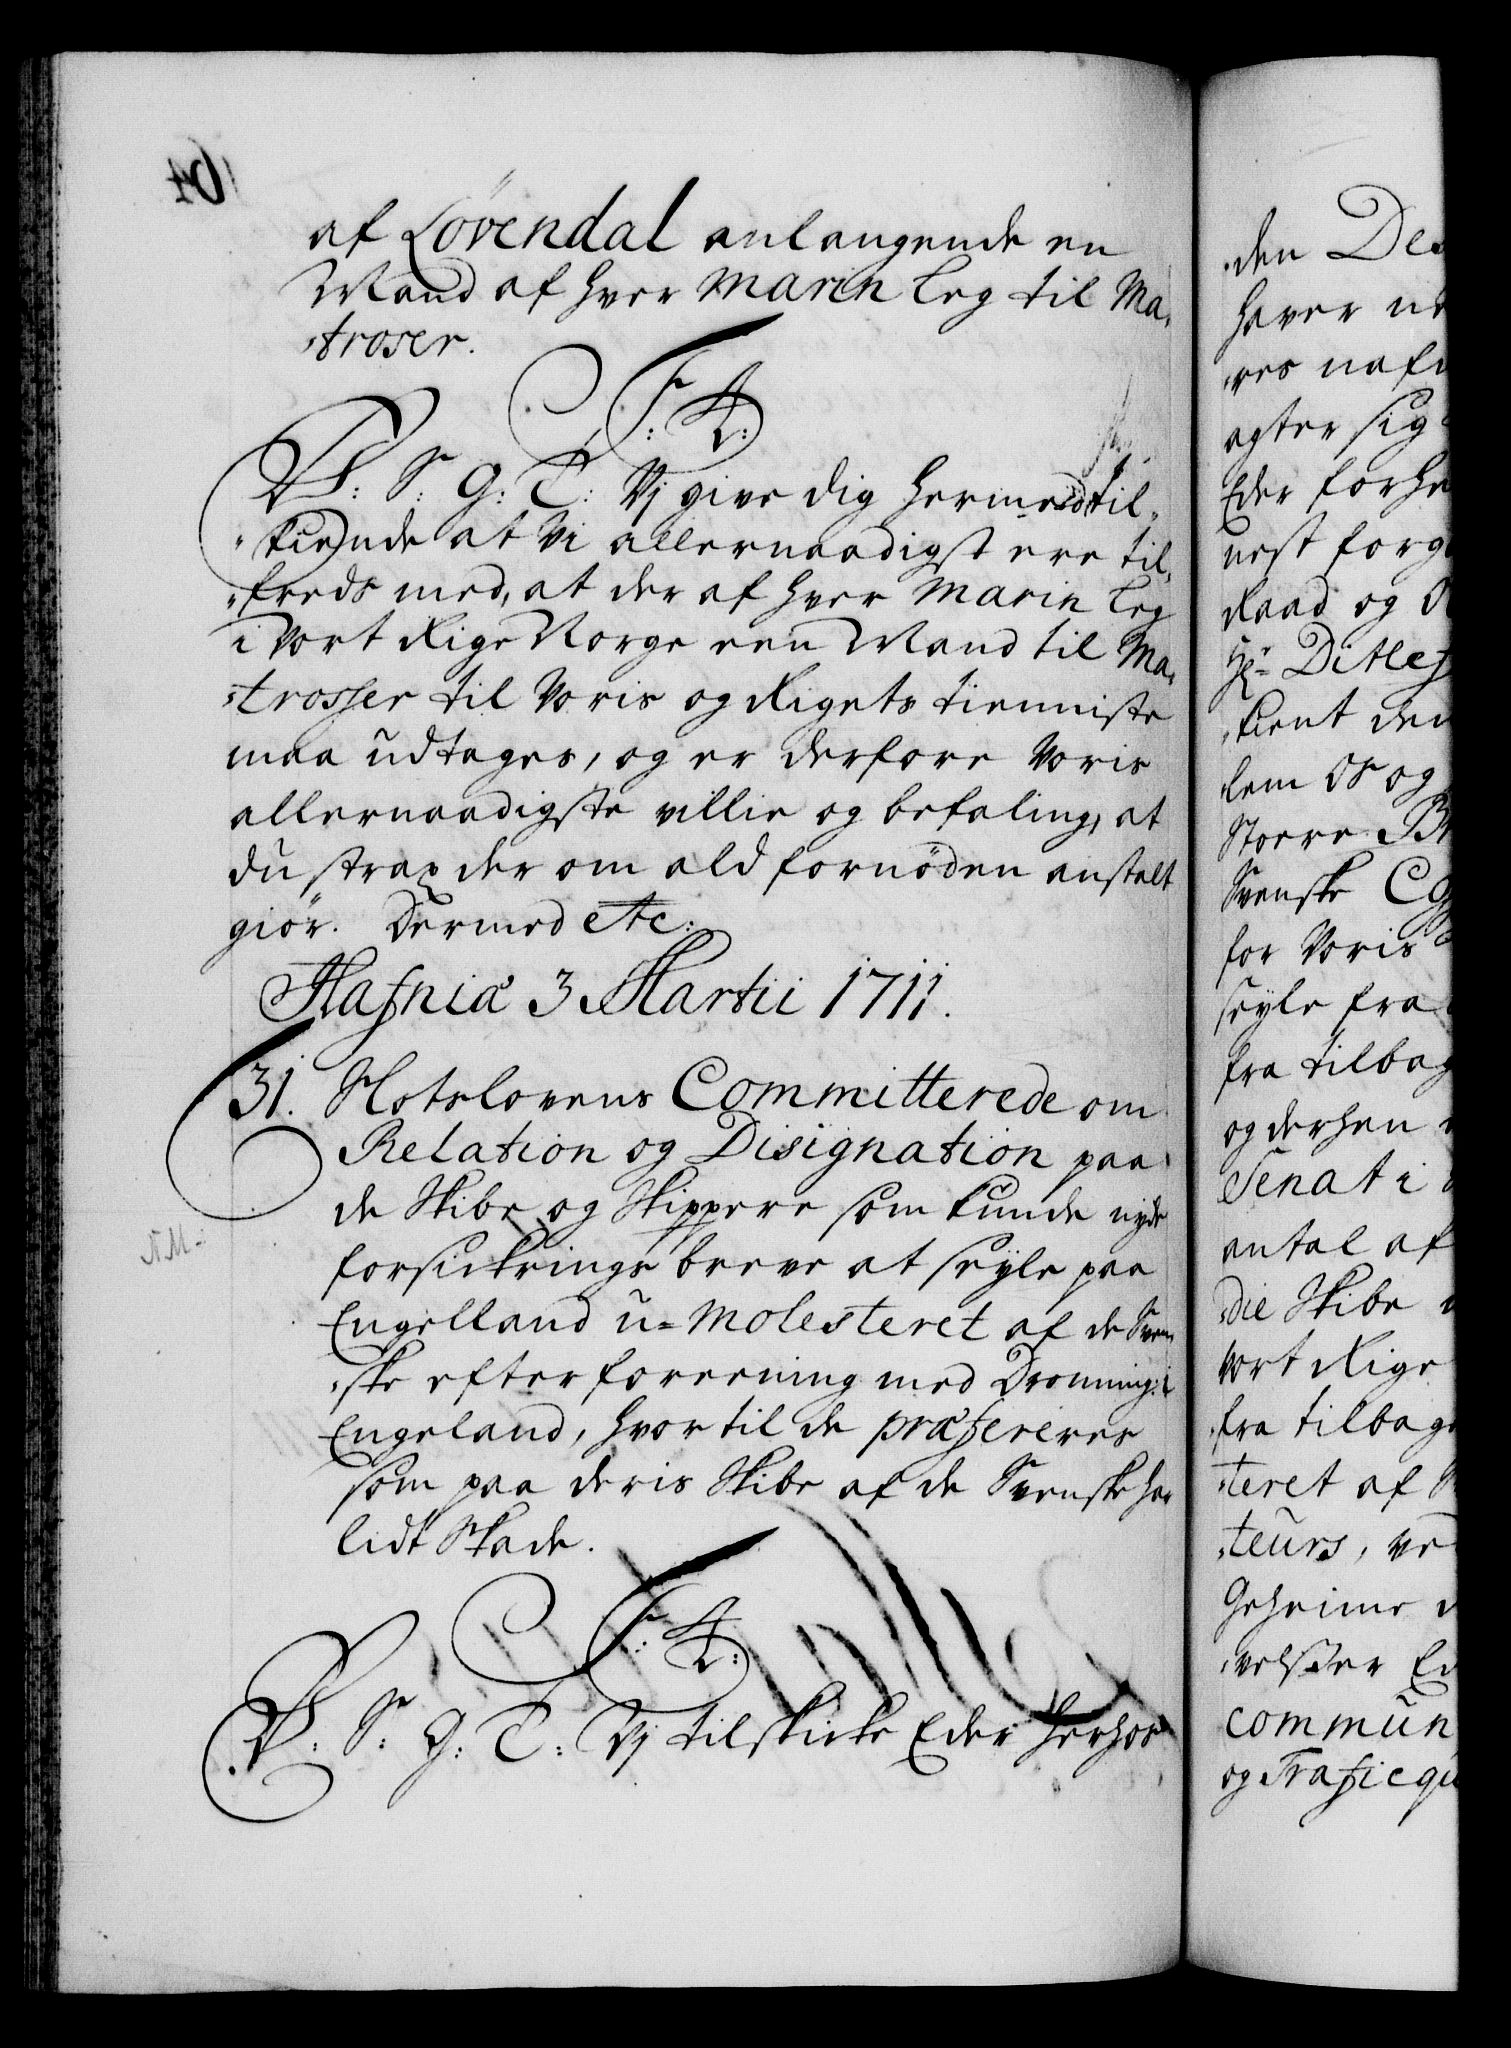 af Løvendal anlangende en
Mand af hver Marin Leg til Ma-
troser.
F: 4:
V: S: G: T: Vj give dig hermed til-
kiende at Vi allernaadigst ere til-
freds med, at der af hver Marin Leg
i Vort Rige Norge een Mand til Ma-
trosser til Voris og Rigets tienniste
maa udtages, og er derfore Voris
allernaadigste villie og befaling, at
du strax der om ald fornøden anstalt
giør. Dermed etc:
Hafniæ 3 Martii 1711.
31. Slotslovens Committerede om
Relation og Disignation paa
de Skibe og Skippere som kunde nyde
forsickrings breve at seyle paa
N.M.
Engelland u-molesteret af de Sven-
ske efter foreening med Dronning: i
Engeland, hvor til de præfereres
som paa deris Skibe af de Svenske har
lidt Skade.
F: 4:
V: S: G: T: Vj tilskicke Eder herhos
den Des
haver
agter sig
Eder
nest
Raad og
Hr. Ditlef
kient den
lem Os og
Store
Svenske
for Voris
seyle fra
fra tilbag
og derhen
Senat i
antal af
die Skibe
Vort Rige
fra tilbag
teret af
teurs, ve
Geheime
velsser
commun
og Traficqu